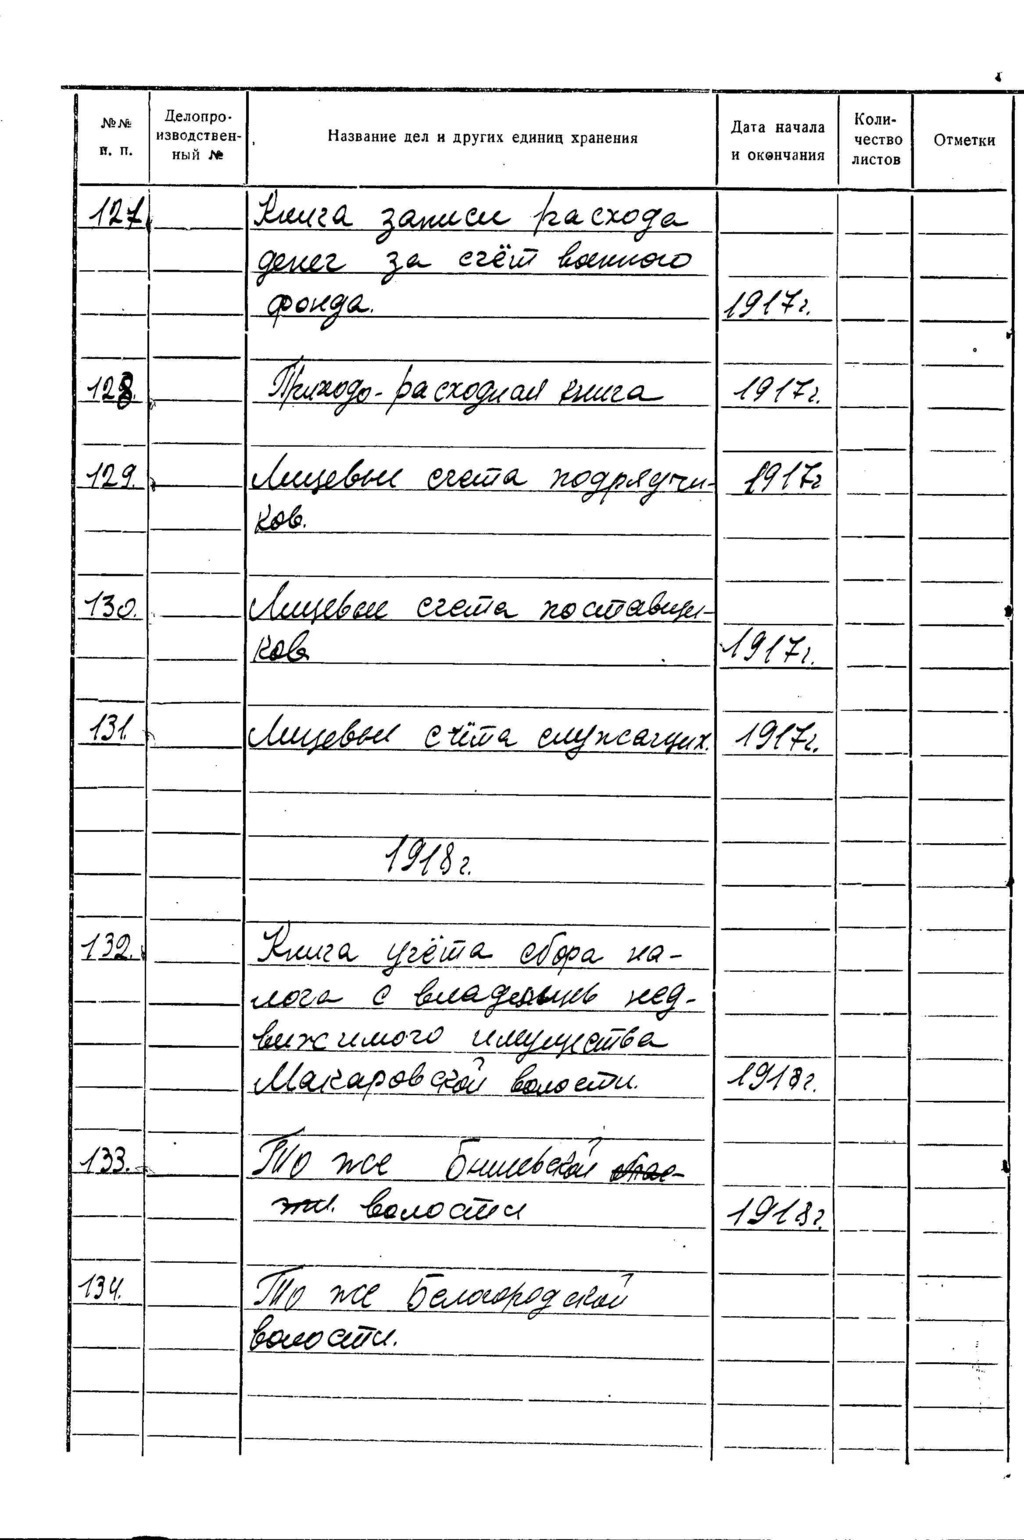 №№ п. п. Делопроизводственный № Название дел и других единиц хранения Дата начала и окончания Количество листов Отметки
127. Книга записи расхода
денег за счёт военного
фонда. 1917г.
128. Приходо-расходная книга 1917г.
129. Лицевые счета подрядчи- 1917г
ков.
130. Лицевые счета поставщи-
ков 1917г.
131. Лицевые счёта служащих. 1917г.
1918г.
132. Книга учёта сбора на-
лога с владельцев нед-
вижимого имущества
Макаровской волости. 1918г.
133. То же Бышевской
волости 1918г
134. То же Белогородской
волости.